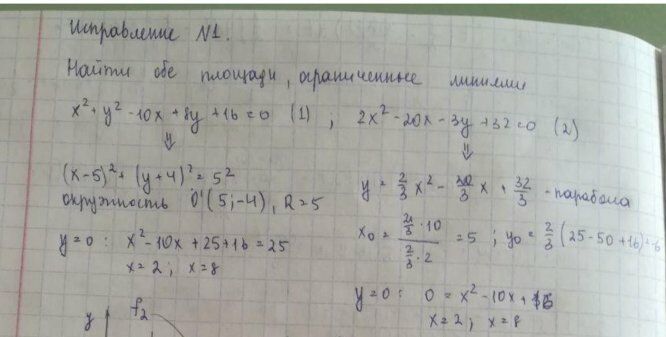 Исправление №1.
Найти обе площади, ограниченные линиями
x² + y² - 10x + 8y + 16 = 0 (1) ; 2x² - 20x - 3y + 32 = 0 (2)
⇓ ⇓
(x-5)² + (y+4)² = 5²
окружность O'(5;-4), R=5
y=0: x² - 10x + 25 + 16 = 25
x=2; x=8
y = 2/3 x² - 20/3 x + 32/3 - парабола
x₀ = (2/3 · 10)/(2/3 · 2) = 5 ; y₀ = 2/3 (25 - 50 + 16) = -6
y=0: 0 = x² - 10x + 16
x=2; x=8
y f₂